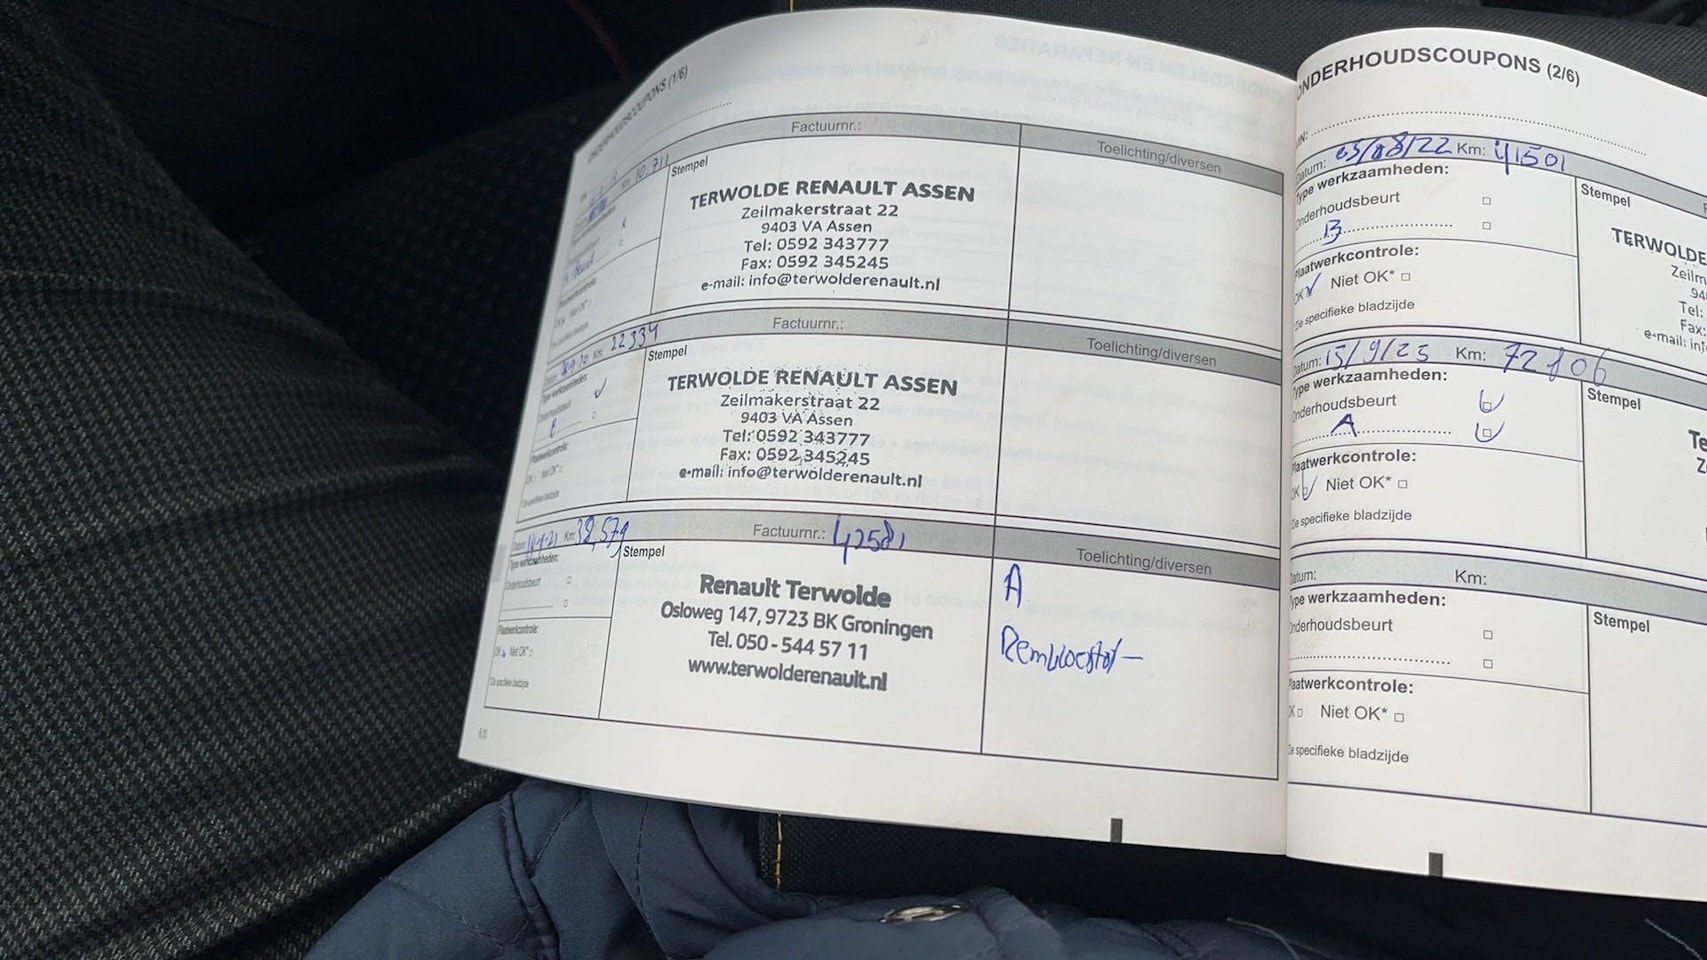 ONDERHOUDSCOUPONS (1/6)
Km: 10.711
Factuurnr.:
Toelichting/diversen
Stempel
TERWOLDE RENAULT ASSEN
Zeilmakerstraat 22
9403 VA Assen
Tel: 0592 343777
Fax: 0592 345245
e-mail: info@terwolderenault.nl
Plaatwerkcontrole:
Km: 22334
Factuurnr.:
Toelichting/diversen
Type werkzaamheden:
Stempel
Onderhoudsbeurt
TERWOLDE RENAULT ASSEN
Zeilmakerstraat 22
9403 VA Assen
Tel: 0592 343777
Fax: 0592 345245
e-mail: info@terwolderenault.nl
Plaatwerkcontrole:
OK Niet OK*
*De specifieke bladzijde
Datum: Km: 38,579
Factuurnr.: 42581
Toelichting/diversen
Type werkzaamheden:
Stempel
Onderhoudsbeurt
Renault Terwolde
Osloweg 147, 9723 BK Groningen
Tel. 050 - 544 57 11
www.terwolderenault.nl
A
Remvloeistof
Plaatwerkcontrole:
OK Niet OK*
*De specifieke bladzijde
ONDERHOUDSCOUPONS (2/6)
VIN:
Datum: 03/08/22 Km: 41501
Type werkzaamheden:
Stempel
Onderhoudsbeurt
B
TERWOLDE
Zeilm
94
Tel:
Fax:
e-mail: inf
Plaatwerkcontrole:
OK Niet OK*
De specifieke bladzijde
Datum: 15/9/25 Km: 72806
Type werkzaamheden:
Stempel
Onderhoudsbeurt
A
Te
Z
Plaatwerkcontrole:
OK Niet OK*
De specifieke bladzijde
Datum: Km:
Type werkzaamheden:
Stempel
Onderhoudsbeurt
Plaatwerkcontrole:
OK Niet OK*
De specifieke bladzijde